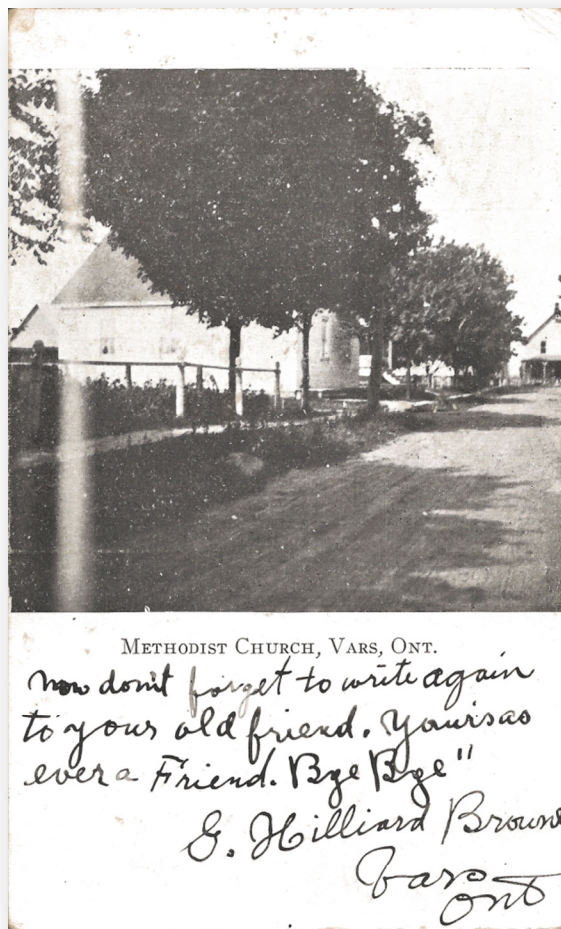 METHODIST CHURCH, VARS, ONT.
now don't forget to write again
to your old friend. Yours as
ever a Friend. Bye Bye"
G. Hilliard Brown
Vars
Ont